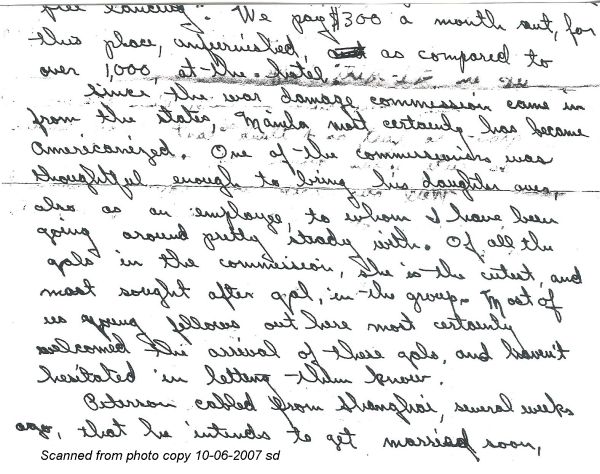 free lancing". We pay $300 a month out, for
this place, unfurnished, as compared to
over 1,000 at the hotel.
Since the war damage commission came in
from the states, Manila most certainly has become
Americanized. One of the commissioners was
thoughtful enough to bring his daughter over,
also as an employee, to whom I have been
going around pretty steady with. Of all the
gals in the commission, she is the cutest, and
most sought after gal, in the group. Most of
us young fellows out here most certainly
welcomed the arrival of these gals, and haven't
hesitated in letting them know.
Peterson cabled from Shanghai, several weeks
ago, that he intends to get married soon,
Scanned from photo copy 10-06-2007 sd